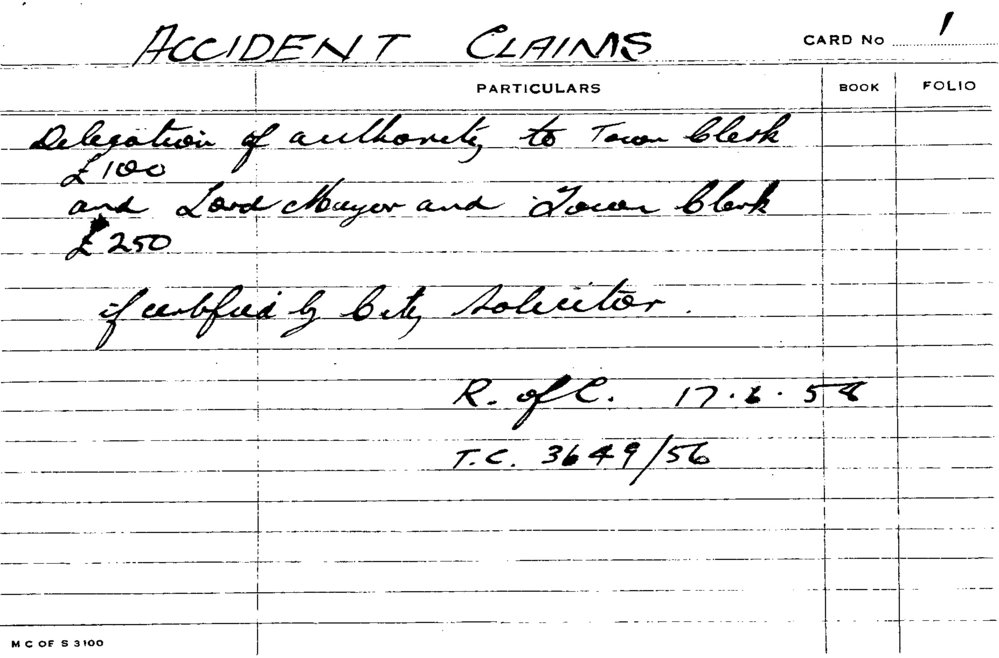 ACCIDENT CLAIMS CARD No 1
PARTICULARS BOOK FOLIO
Delegation of authority to Town Clerk
£100
and Lord Mayor and Town Clerk
£250
if certified by City Solicitor.
R. of C. 17.6.58
T.C. 3649/56
M C OF S 3100